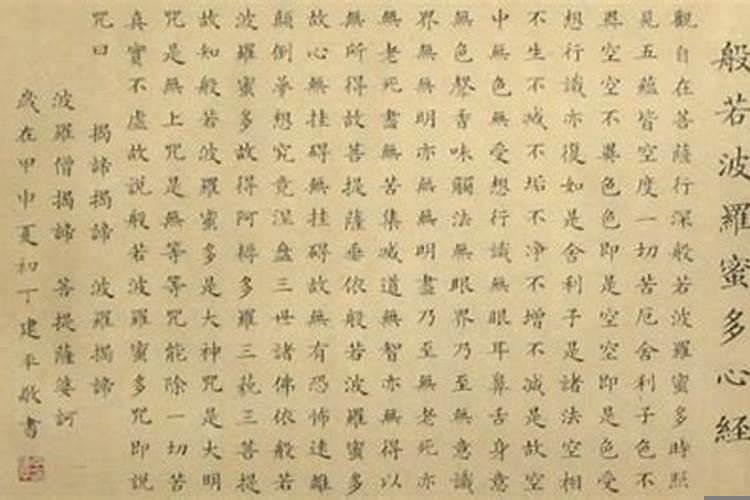 般若波羅蜜多心經
觀自在菩薩行深般若波羅蜜多時照
見五蘊皆空度一切苦厄舍利子色不
異空空不異色色即是空空即是色受
想行識亦復如是舍利子是諸法空相
不生不滅不垢不淨不增不減是故空
中無色無受想行識無眼耳鼻舌身意
無色聲香味觸法無眼界乃至無意識
界無無明亦無無明盡乃至無老死亦
無老死盡無苦集滅道無智亦無得以
無所得故菩提薩埵依般若波羅蜜多
故心無挂礙無挂礙故無有恐怖遠離
顛倒夢想究竟涅盤三世諸佛依般若
波羅蜜多故得阿耨多羅三藐三菩提
故知般若波羅蜜多是大神咒是大明
咒是無上咒是無等等咒能除一切苦
真實不虛故說般若波羅蜜多咒即說
咒曰 揭諦揭諦 波羅揭諦
波羅僧揭諦 菩提薩婆訶
歲在甲申夏初丁建平敬書